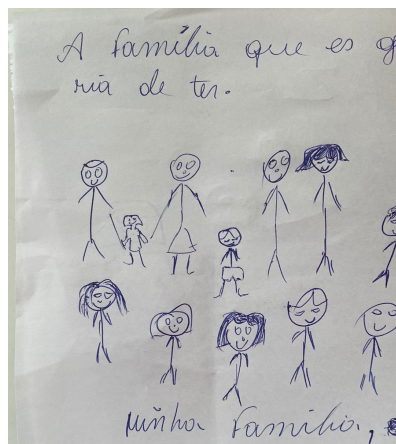 A família que es g
ria de ter.
Minha família,